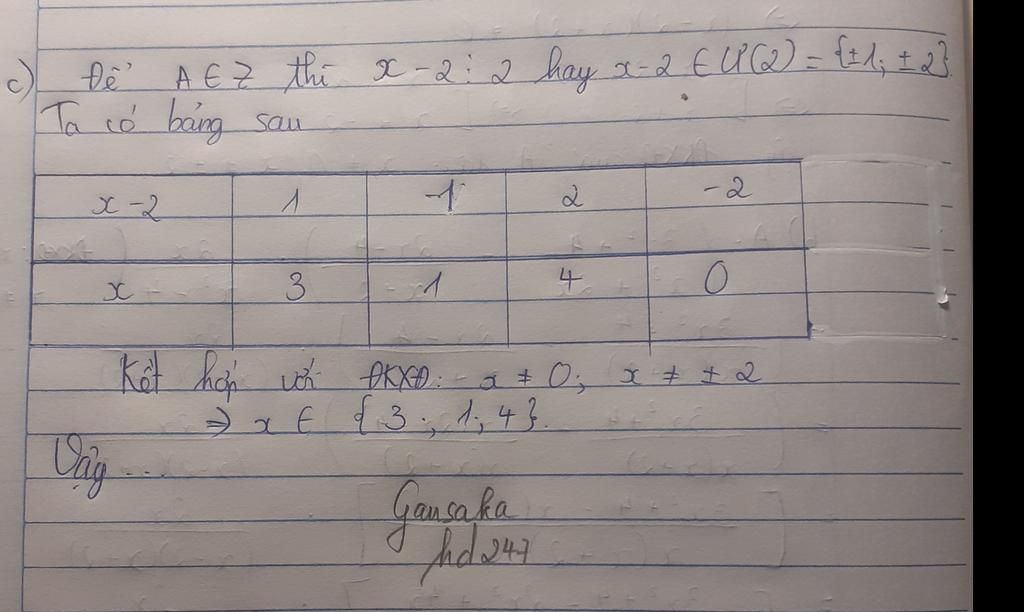 c) Để A ∈ Z thì x - 2 ⋮ 2 hay x - 2 ∈ Ư(2) = {±1; ±2}.
Ta có bảng sau
x - 2 1 -1 2 -2
x 3 1 4 0
Kết hợp với ĐKXĐ: x ≠ 0; x ≠ ±2
⇒ x ∈ {3; 1; 4}.
Vậy ...
Gansaka
hd247